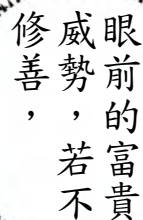 眼前的富貴
威勢，若不
修善，